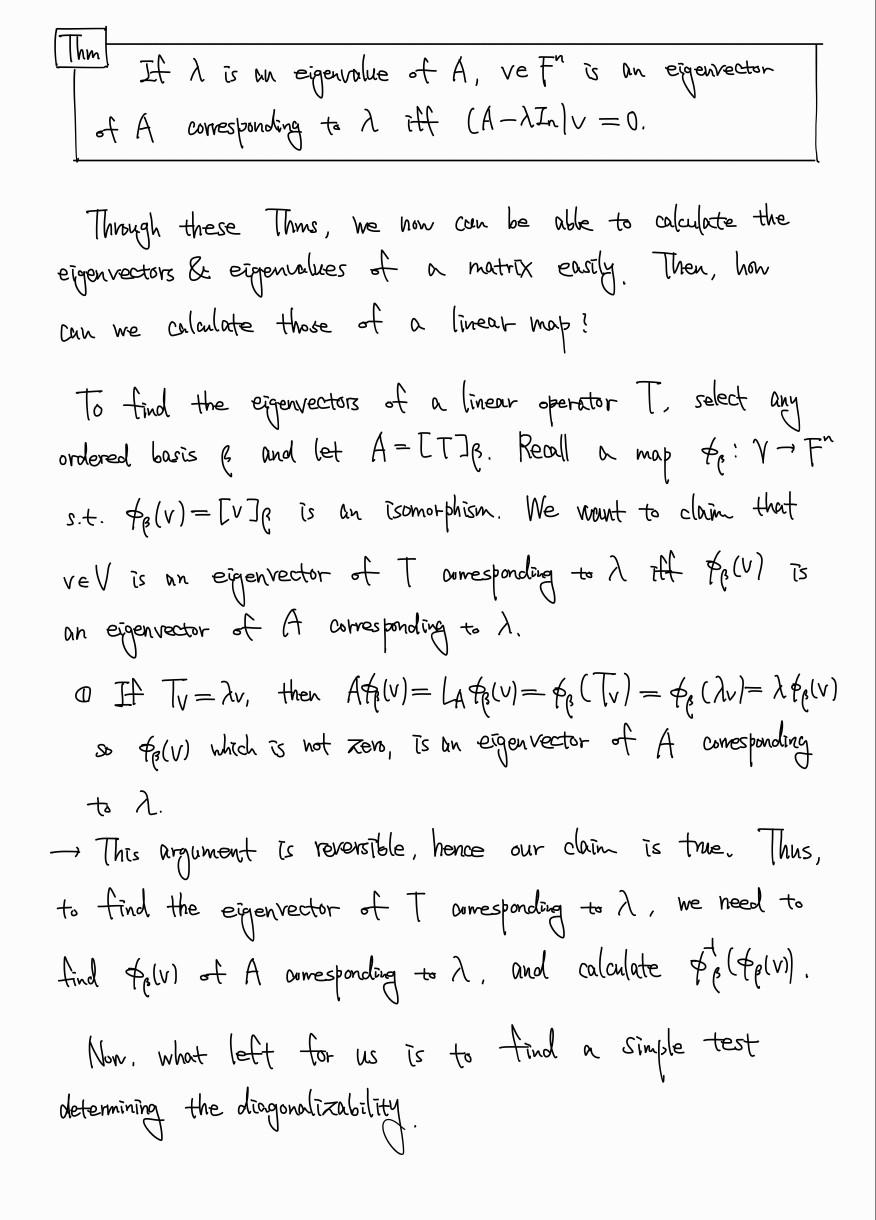 Thm
If λ is an eigenvalue of A, v∈Fⁿ is an eigenvector
of A corresponding to λ iff (A-λIn)v = 0.
Through these Thms, we now can be able to calculate the
eigenvectors & eigenvalues of a matrix easily. Then, how
can we calculate those of a linear map?
To find the eigenvectors of a linear operator T, select any
ordered basis β and let A = [T]β. Recall a map ϕβ : V → Fⁿ
s.t. ϕβ(v) = [v]β is an isomorphism. We want to claim that
v∈V is an eigenvector of T corresponding to λ iff ϕβ(v) is
an eigenvector of A corresponding to λ.
① If Tv = λv, then Aϕβ(v) = LAϕβ(v) = ϕβ(Tv) = ϕβ(λv) = λϕβ(v)
so ϕβ(v) which is not zero, is an eigenvector of A corresponding
to λ.
→ This argument is reversible, hence our claim is true. Thus,
to find the eigenvector of T corresponding to λ, we need to
find ϕβ(v) of A corresponding to λ, and calculate ϕβ⁻¹(ϕβ(v)).
Now, what left for us is to find a simple test
determining the diagonalizability.